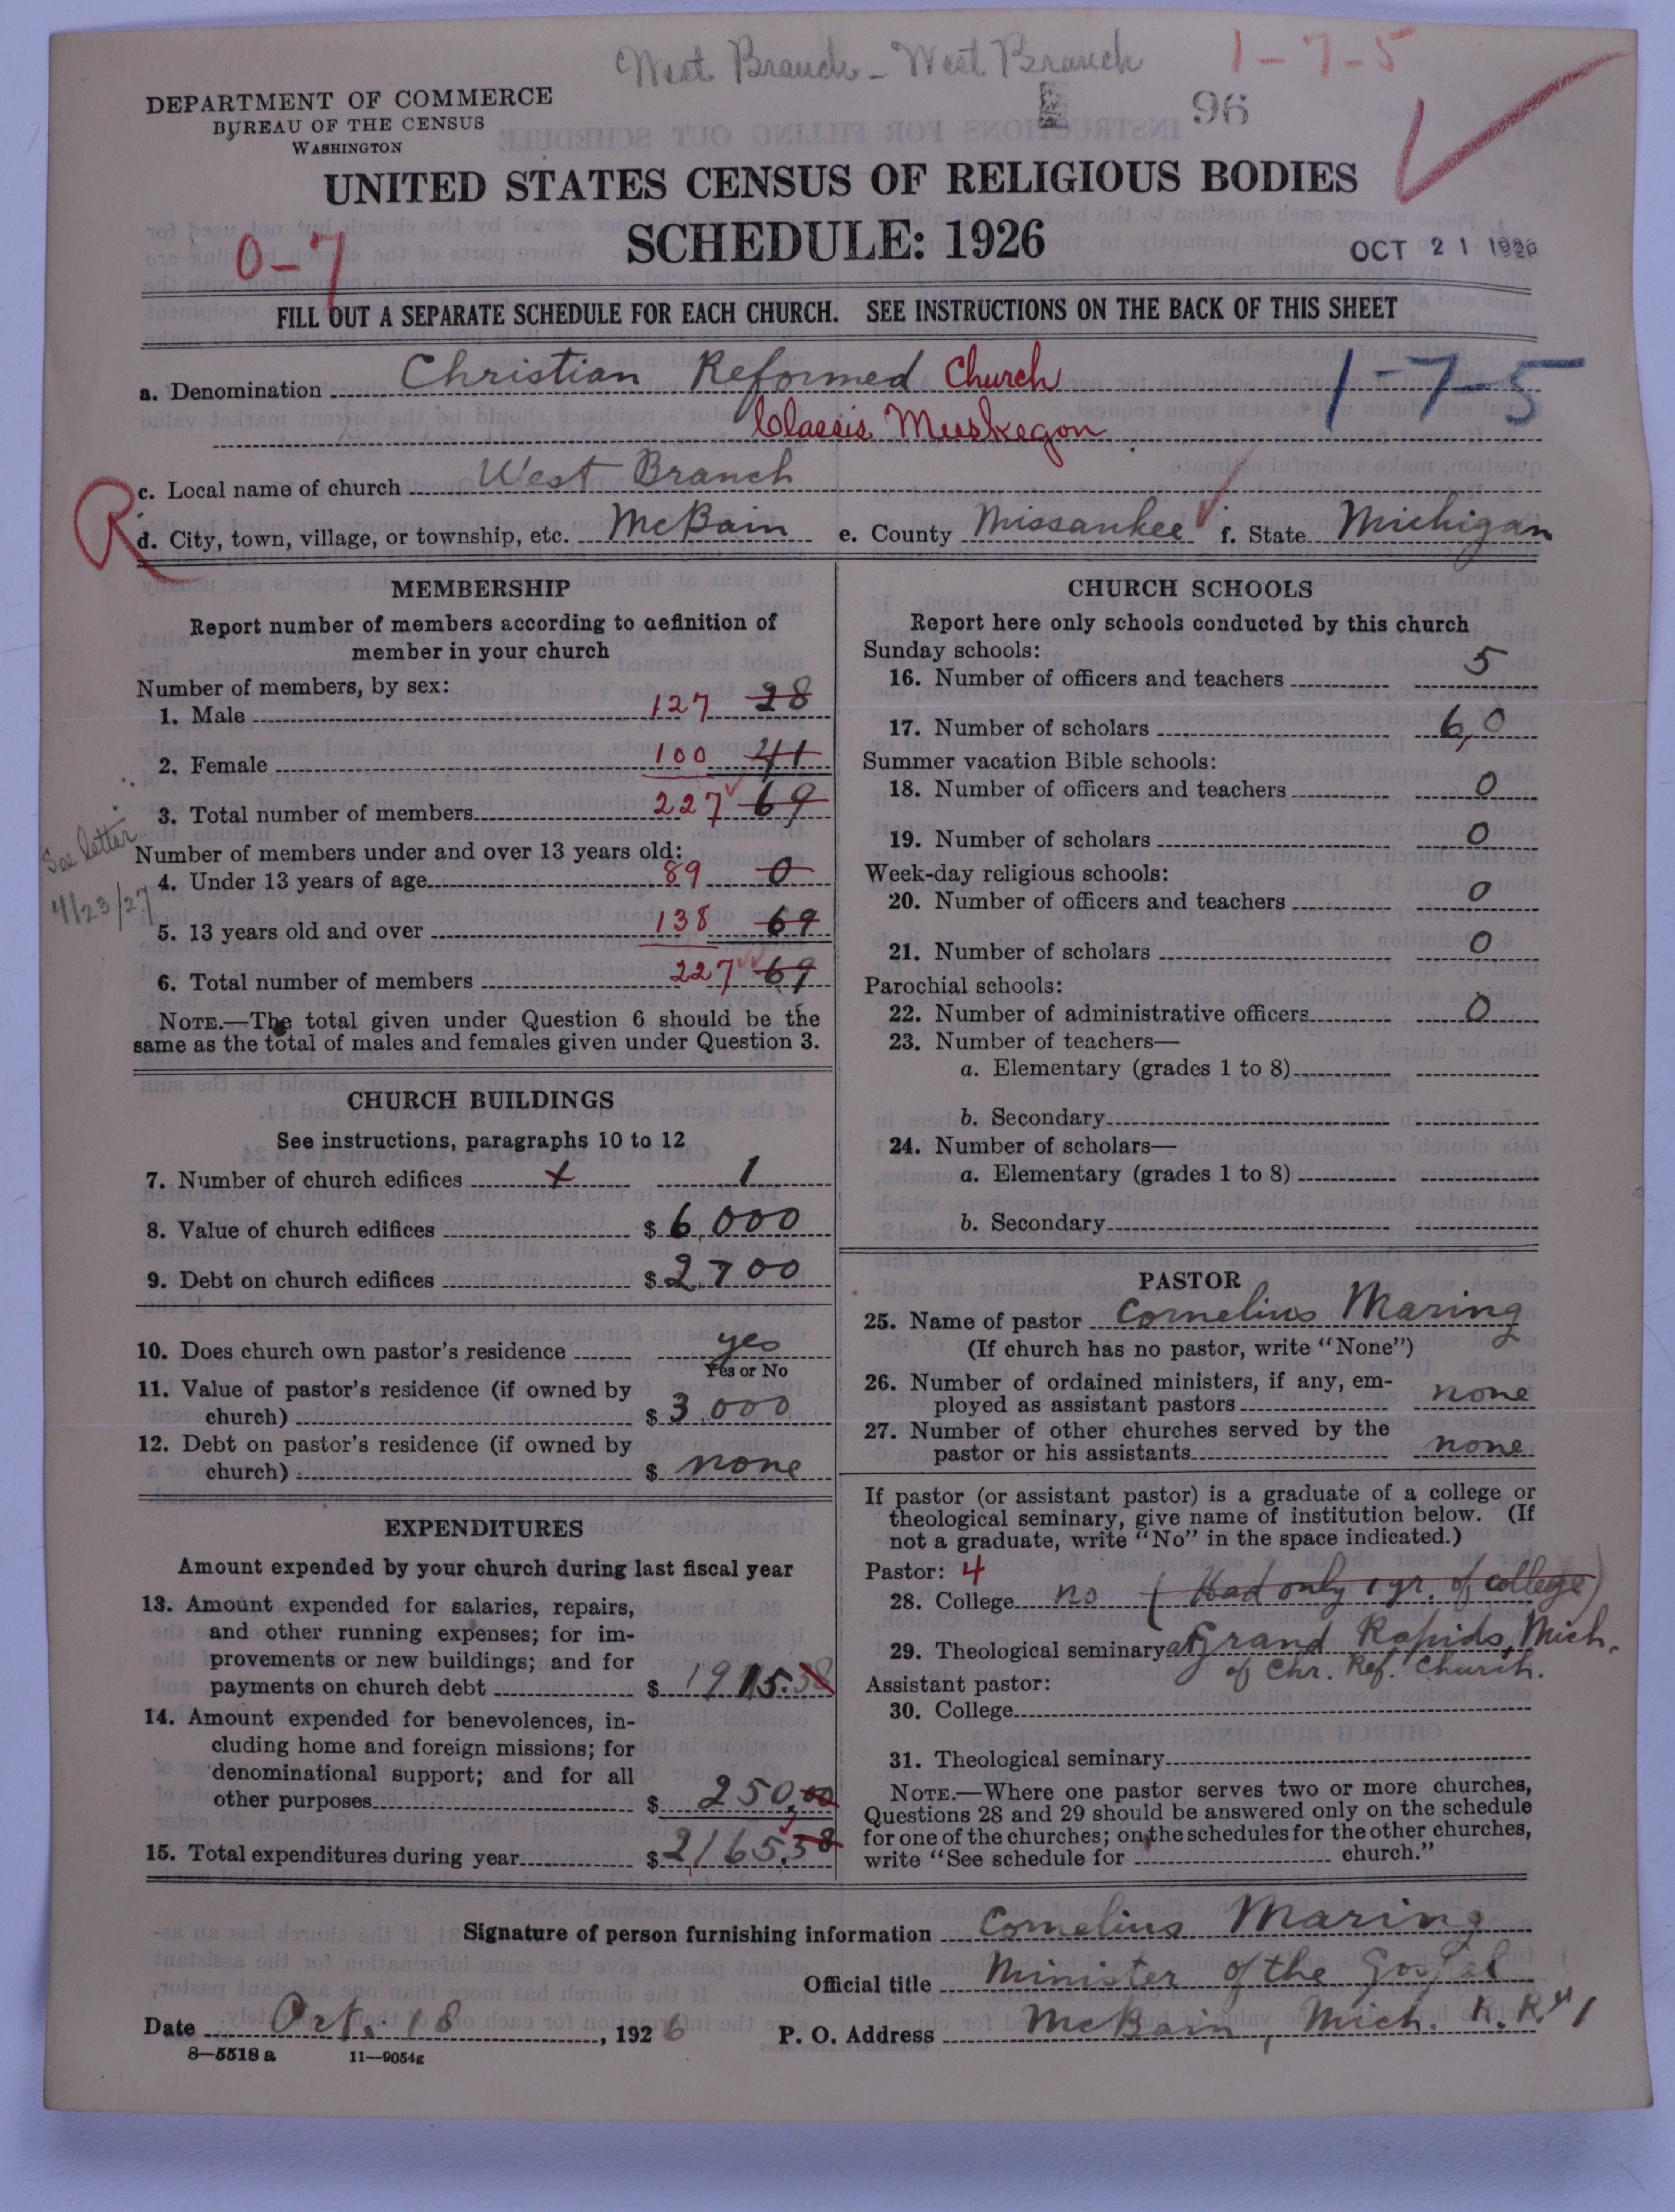 West Branch - West Branch 1-7-5
DEPARTMENT OF COMMERCE
BUREAU OF THE CENSUS
WASHINGTON
96
UNITED STATES CENSUS OF RELIGIOUS BODIES
SCHEDULE: 1926
0-7
OCT 21 1926
FILL OUT A SEPARATE SCHEDULE FOR EACH CHURCH. SEE INSTRUCTIONS ON THE BACK OF THIS SHEET
a. Denomination Christian Reformed Church 1-7-5
Classis Muskegon
R
c. Local name of church West Branch
d. City, town, village, or township, etc. McBain e. County Missaukee f. State Michigan
MEMBERSHIP
Report number of members according to definition of
member in your church
Number of members, by sex:
1. Male 127 28
2. Female 100 41
3. Total number of members 227 69
See letter
4/23/27
Number of members under and over 13 years old:
4. Under 13 years of age 89 0
5. 13 years old and over 138 69
6. Total number of members 227 69
NOTE.—The total given under Question 6 should be the
same as the total of males and females given under Question 3.
CHURCH BUILDINGS
See instructions, paragraphs 10 to 12
7. Number of church edifices 1
8. Value of church edifices $ 6,000
9. Debt on church edifices $ 2700
10. Does church own pastor's residence yes
Yes or No
11. Value of pastor's residence (if owned by
church) $ 3,000
12. Debt on pastor's residence (if owned by
church) $ none
EXPENDITURES
Amount expended by your church during last fiscal year
13. Amount expended for salaries, repairs,
and other running expenses; for im-
provements or new buildings; and for
payments on church debt $ 1915.38
14. Amount expended for benevolences, in-
cluding home and foreign missions; for
denominational support; and for all
other purposes $ 250,00
15. Total expenditures during year $ 2165.38
CHURCH SCHOOLS
Report here only schools conducted by this church
Sunday schools:
16. Number of officers and teachers 5
17. Number of scholars 60
Summer vacation Bible schools:
18. Number of officers and teachers 0
19. Number of scholars 0
Week-day religious schools:
20. Number of officers and teachers 0
21. Number of scholars 0
Parochial schools:
22. Number of administrative officers 0
23. Number of teachers—
a. Elementary (grades 1 to 8)
b. Secondary
24. Number of scholars—
a. Elementary (grades 1 to 8)
b. Secondary
PASTOR
25. Name of pastor Cornelius Maring
(If church has no pastor, write "None")
26. Number of ordained ministers, if any, em-
ployed as assistant pastors none
27. Number of other churches served by the
pastor or his assistants none
If pastor (or assistant pastor) is a graduate of a college or
theological seminary, give name of institution below. (If
not a graduate, write "No" in the space indicated.)
Pastor: 4
28. College no (Had only 1 yr. of college)
29. Theological seminary at Grand Rapids, Mich.
of Chr. Ref. Church.
Assistant pastor:
30. College
31. Theological seminary
NOTE.—Where one pastor serves two or more churches,
Questions 28 and 29 should be answered only on the schedule
for one of the churches; on the schedules for the other churches,
write "See schedule for church."
Signature of person furnishing information Cornelius Maring
Official title Minister of the Gospel
Date Oct. 18, 1926 P. O. Address McBain, Mich. R.R. #1
8—5518 a 11—9054g